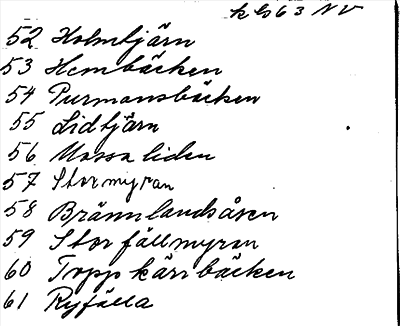 k G 63 NV
52 Holmtjärn
53 Hembäcken
54 Purmansbäcken
55 Lidtjärn
56 Mossaliden
57 Stormyran
58 Brännlandsåsen
59 Storfällmyran
60 Toppkärrbäcken
61 Ryfälla